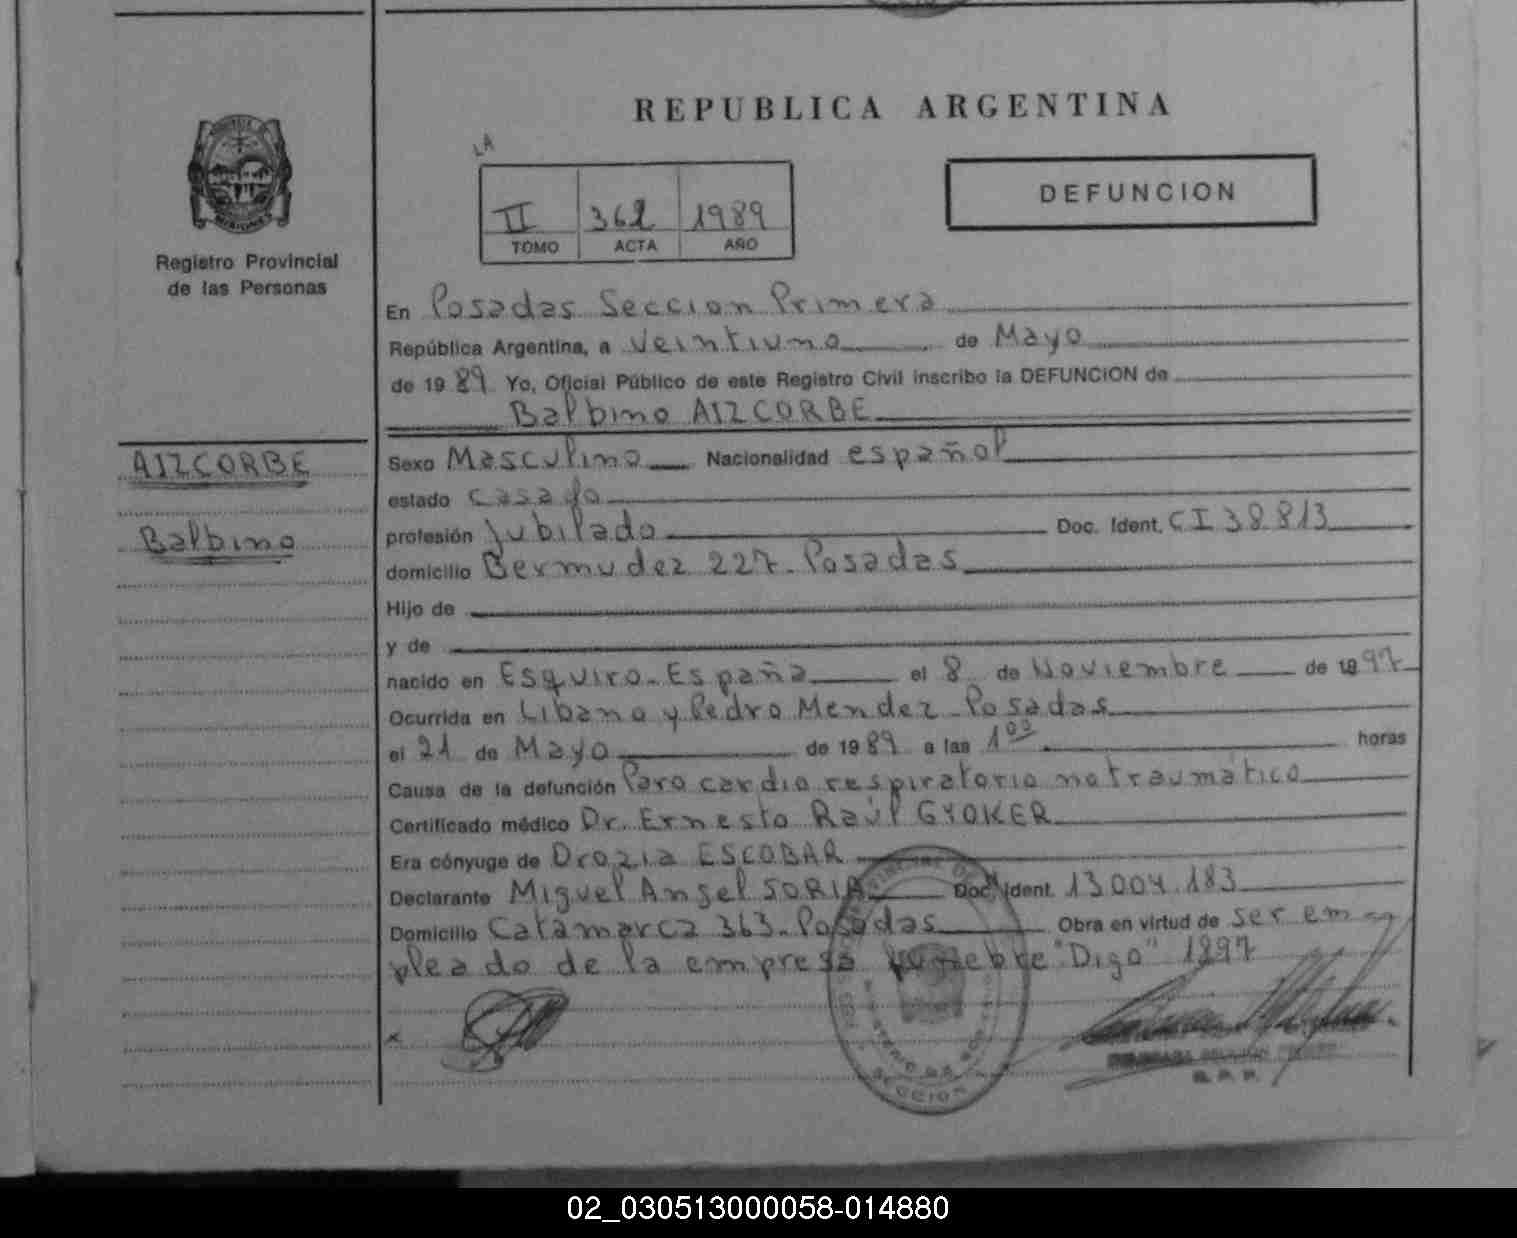 REPUBLICA ARGENTINA
LA
II 362 1989
TOMO ACTA AÑO
DEFUNCION
Registro Provincial
de las Personas
En Posadas Seccion Primera
República Argentina, a veintiuno de Mayo
de 1989 Yo, Oficial Público de este Registro Civil inscribo la DEFUNCION de
Balbino AIZCORBE
AIZCORBE
Balbino
Sexo Masculino Nacionalidad español
estado casado
profesión Jubilado Doc. Ident. CI 38.813
domicilio Bermudez 227. Posadas
Hijo de
y de
nacido en Esquiro. España el 8 de Noviembre de 1897
Ocurrida en Libano y Pedro Mendez. Posadas
el 21 de Mayo de 1989 a las 1 03 horas
Causa de la defunción Paro cardio respiratorio no traumático
Certificado médico Dr. Ernesto Raúl GYOKER
Era cónyuge de Drozia ESCOBAR
Declarante Miguel Angel SORIA Doc. Ident. 13.004.183
Domicilio Catamarca 363. Posadas Obra en virtud de ser em
pleado de la empresa funebre "Digo" 1897
x
SECCION
R. P. P.
02_030513000058-014880